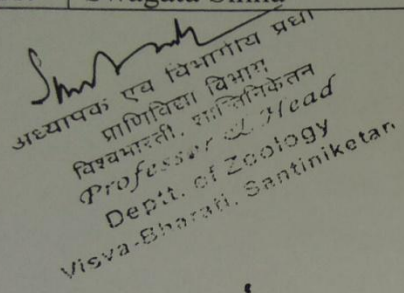 Swagata
अध्यापक एवं विभागीय प्रधा
प्राणिविद्या विभाग
विश्वभारती, शान्तिनिकेतन
Professor & Head
Deptt. of Zoology
Visva-Bharati, Santiniketan